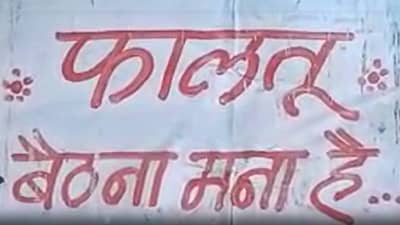 फालतू
बैठना मना है...